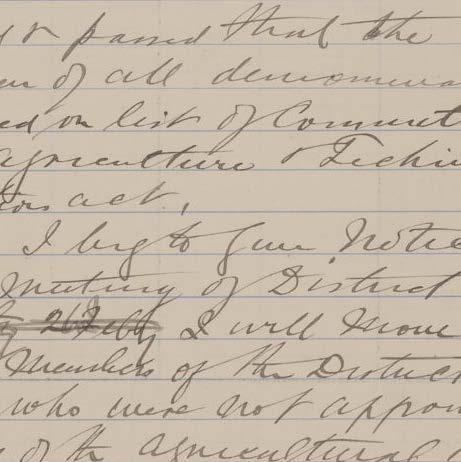 & passed that the
of all denomina
ed on list of Committ
Agriculture & Techn
tion act,
I beg to give Notic
Meeting of District
26 Feby I will Move
Members of the District
who were not appoin
of the agricultural